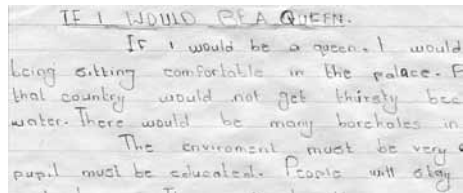 IF I WOULD BE A QUEEN.
If I would be a queen. I would
being sitting comfortable in the palace.
that country would not get thirsty bec
water. There would be many boreholes in
The enviroment must be very
pupil must be educatent. People will stay